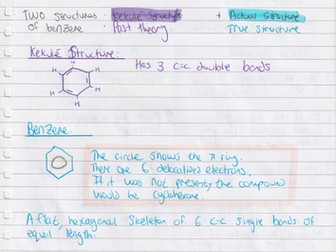 Two structures Kekulé Structure + Actual Structure
of benzene: Past theory True structure
Kekulé Structure:
Has 3 C=C double bonds
H
H H
H H
H
Benzene
The circle shows the π ring.
There are 6 delocalised electrons.
If it was not present, the compound
would be cyclohexane
A flat, hexagonal skeleton of 6 C-C single bonds of
equal length.